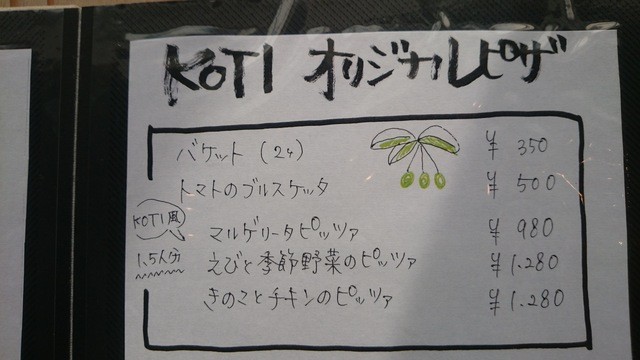 KOTI オリジナルピザ
バケット (2ケ) ¥350
トマトのブルスケッタ ¥500
KOTI風
マルゲリータピッツァ ¥980
1.5人分
えびと季節野菜のピッツァ ¥1.280
きのことチキンのピッツァ ¥1.280